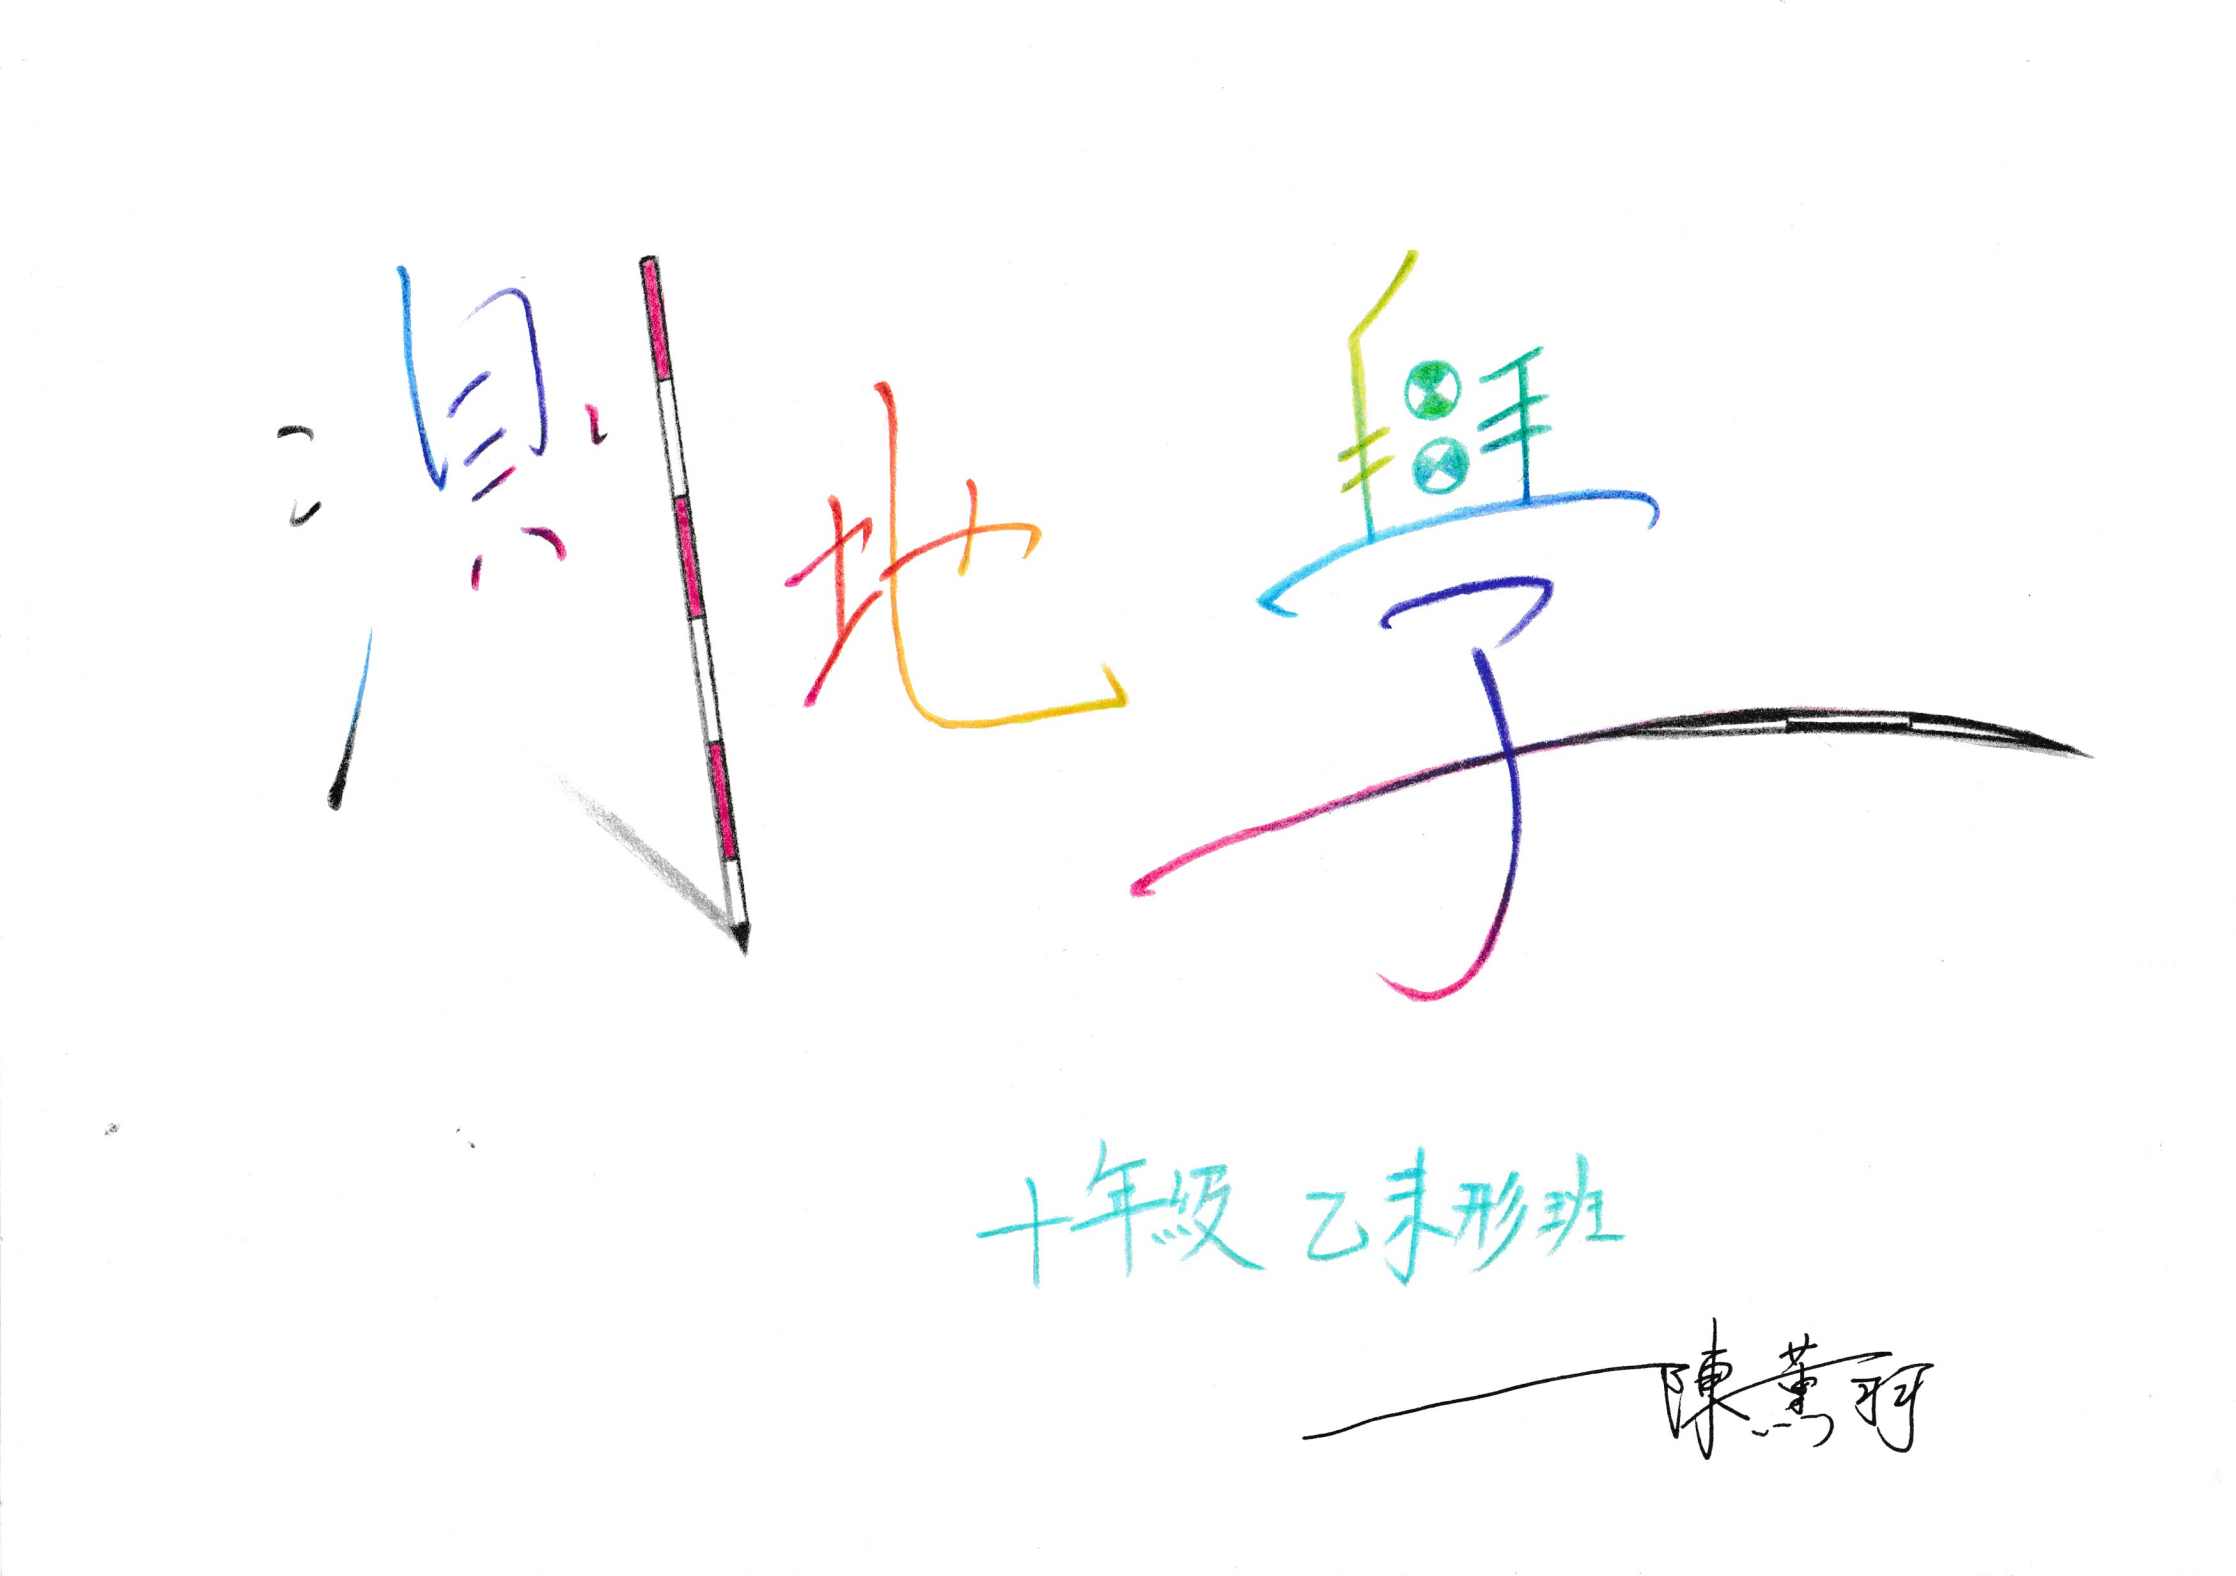 測地學
十年級 乙未形班
陳薰羽